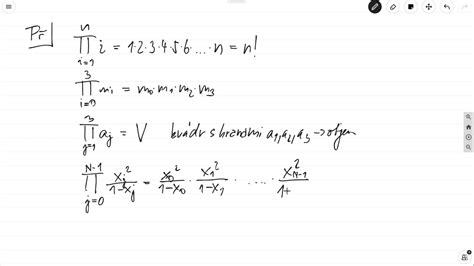 Př
∏_{i=1}^{n} i = 1·2·3·4·5·6·...·n = n!
∏_{i=0}^{3} m_i = m_0·m_1·m_2·m_3
∏_{j=1}^{3} a_j = V kvádr s hranami a_1, a_2, a_3 → objem
∏_{j=0}^{N-1} x_j^2/(1-x_j) = x_0^2/(1-x_0) · x_1^2/(1-x_1) · .... · x_{N-1}^2/(1+